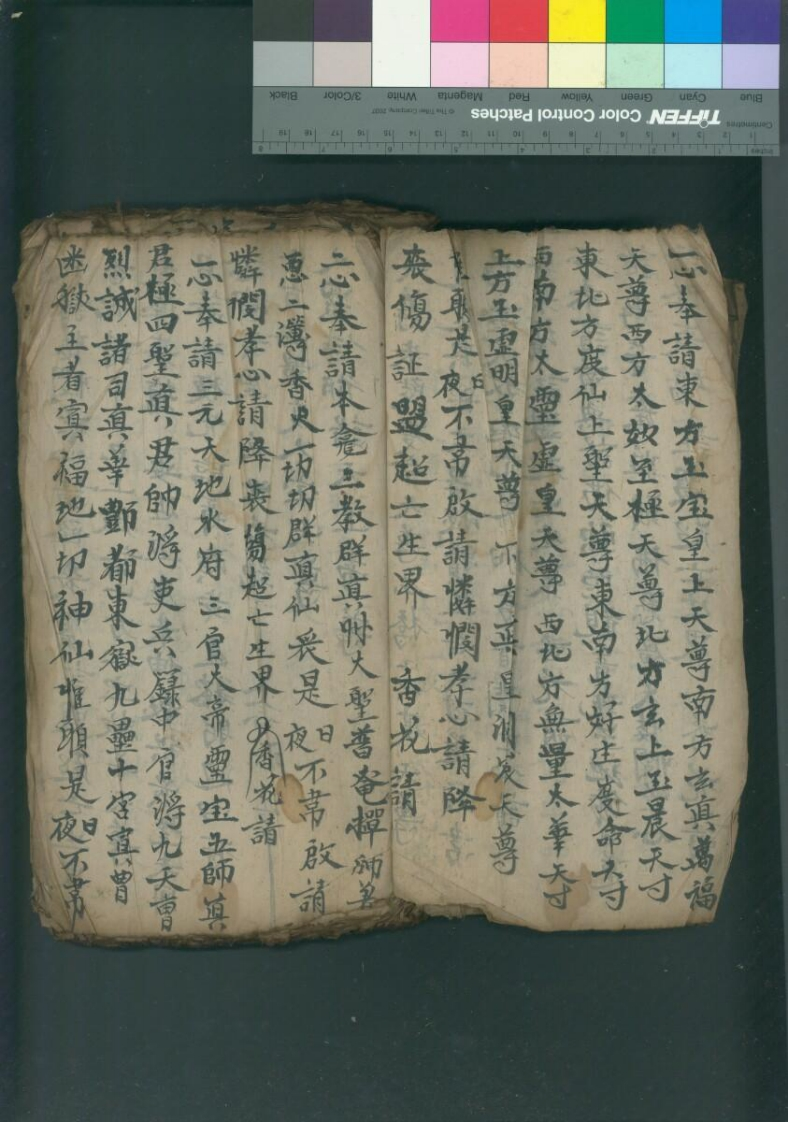 一心奉請東方玉宝皇上天尊南方玄真萬福
天尊西方太妙至極天尊北方玄上玉晨天寸
東北方度仙上聖天尊東南方好生度命天寸
西南方太靈虛皇天尊 西北方無量太華天寸
上方玉虛明皇天尊 下方真皇洞神天尊
是夜日不常啟請憐憫孝心請降
喪傷証盟超亡生界 香花請
一心奉請本龕三教群真州大聖普奄禪師並
香火一切切群真仙 是夜日不常啟請
憐憫孝心請降喪傷超亡生界 香花請
一心奉請三元天地水府三官大帝靈宝五師真
君極四聖真君帥將吏兵籙中官將九天曹
烈誠諸司真宰酆都東嶽九壘十宮真曹
幽獄主者冥福地一切神仙惟願是夜日不常
TIFFEN Color Control Patches
© The Tiffen Company, 2007
Blue Cyan Green Yellow Red Magenta White 3/Color Black
Centimetres
Inches